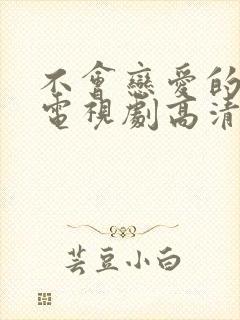 不會戀愛的
電視劇高清
芸豆小白